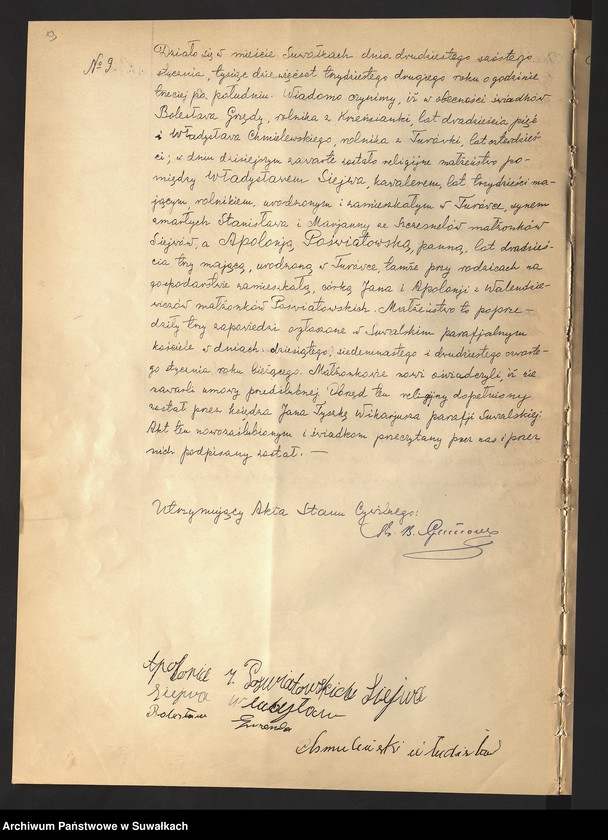 No 9.
Działo się w mieście Suwałkach dnia dwudziestego szóstego
stycznia, tysiąc dziewięćset trzydziestego drugiego roku o godzinie
trzeciej po południu. Wiadomo czynimy, iż w obecności świadków
Bolesława Grędy, rolnika z Krzesianki, lat dwadzieścia pięć
i Władysława Chmielewskiego, rolnika z Turówki, lat czterdzieś-
ci; w dniu dzisiejszym zawarte zostało religijne małżeństwo po-
między Władysławem Siejwa, kawalerem, lat trzydzieści ma-
jącym, rolnikiem, urodzonym i zamieszkałym w Turówce, synem
zmarłych Stanisława i Marjanny ze Szczesnelów małżonków
Siejwów, a Apolonją Poświatowską, panną, lat dwadzieś-
cia trzy mającą, urodzoną w Turówce, tamże przy rodzicach na
gospodarstwie zamieszkałą, córką Jana i Apolonji z Walendzie-
wiczów małżonków Poświatowskich. Małżeństwo to poprze-
dziły trzy zapowiedzi ogłoszone w Suwalskim parafjalnym
kościele w dniach: dziesiątego, siedemnastego i dwudziestego czwarte-
go stycznia roku bieżącego. Małżonkowie nowi oświadczyli, iż nie
zawarli umowy przedślubnej. Obrzęd ten religijny dopełniony
został przez księdza Jana Tyszkę Wikarjusza parafji Suwalskiej.
Akt ten nowozaślubionym i świadkom przeczytany przez nas i przez
nich podpisany został. —
Utrzymujący Akta Stanu Cywilnego:
Ks. B.
Apolonia z Poświatowskich Siejwa
Siejwa Władysław
Bolesław
Archiwum Państwowe w Suwałkach